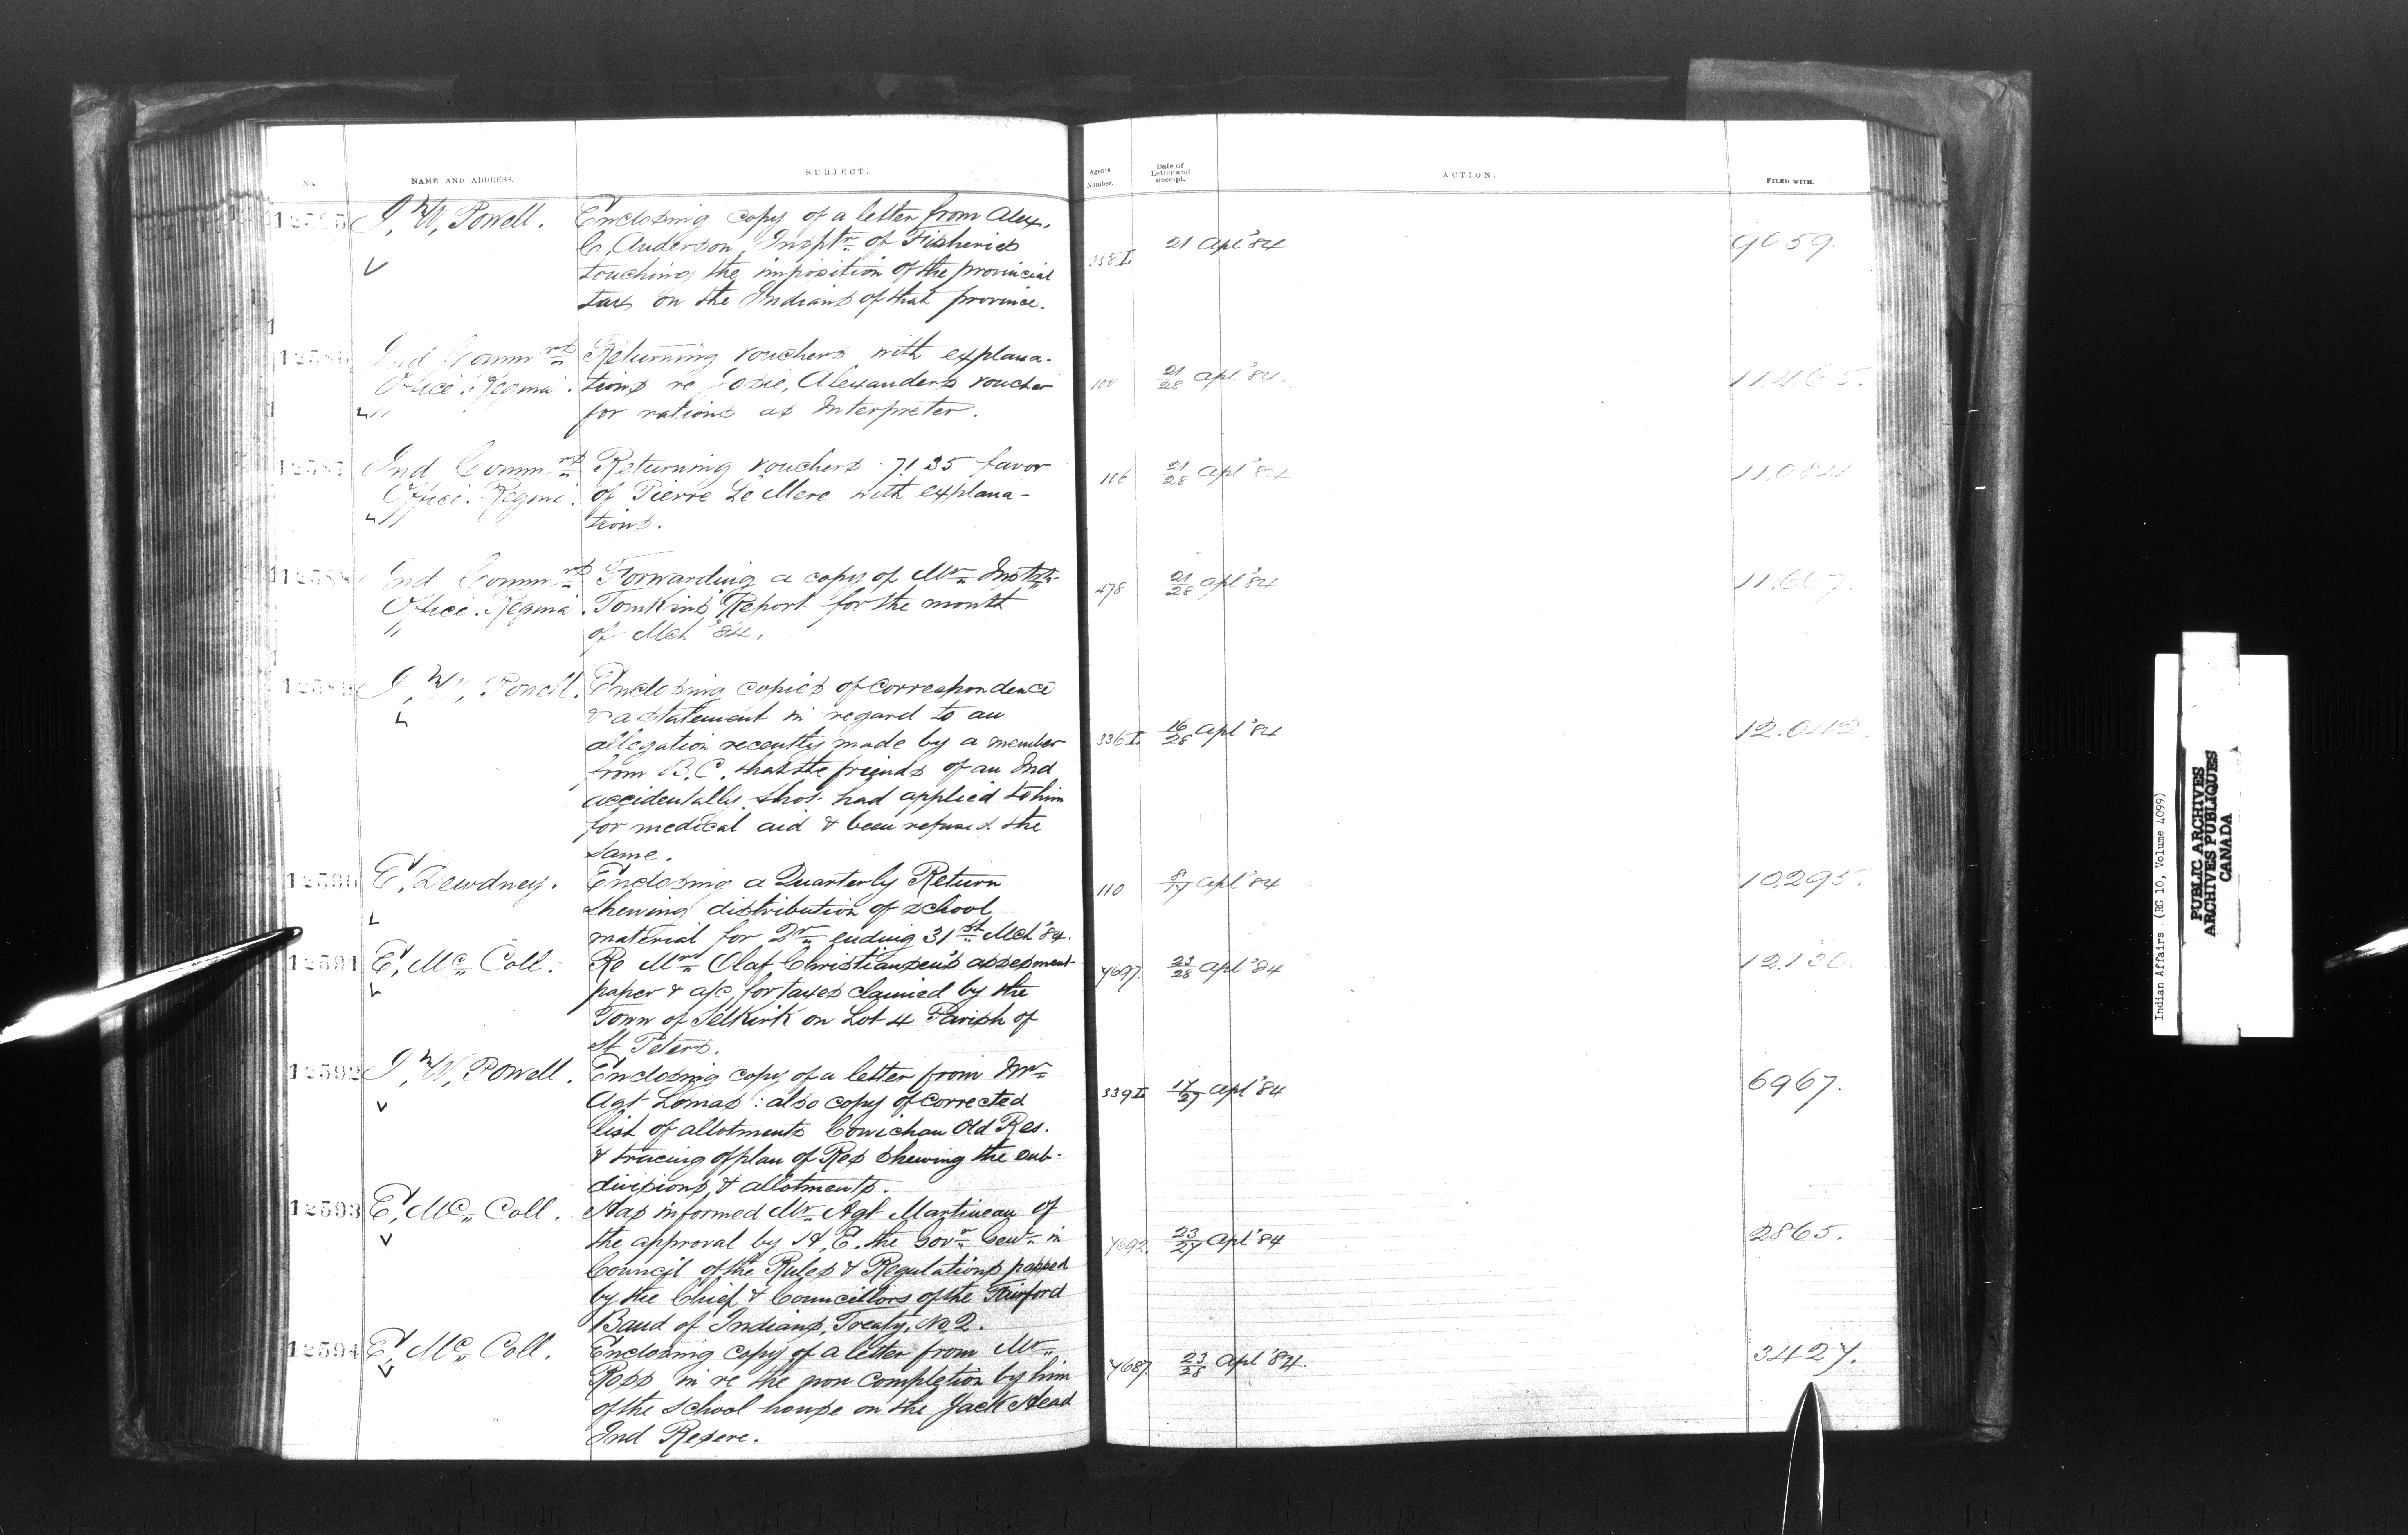 No.
NAME AND ADDRESS.
SUBJECT.
Agents Number.
Date of Letter and Receipt.
ACTION.
FILED WITH.
12585 I. W. Powell. Enclosing copy of a letter from Alex. 21 Apl '84 9059.
C. Anderson, Insptr. of Fisheries
touching the imposition of the provincial
tax on the Indians of that province.
12586 Ind Commrs Returning vouchers with explana-
Office. Regina. tions re Josie, Alexanders voucher 21/28 Apl '84. 11.465.
" for rations as Interpreter.
12587 Ind Commrs Returning vouchers 71 35 favor
Office. Regina. of Pierre Le Mere with explana- 116 21/28 Apl '84
" tions.
12588 Ind Commrs Forwarding a copy of Mr. Instr.
Office. Regina. Tomkins' Report for the month 478 21/28 Apl '84 11.607.
" of Mch '84.
12589 I. W. Powell. Enclosing copies of correspondence
& a statement in regard to an
allegation recently made by a member 336 I. 16/28 Apl '84
from B.C. that the friends of an Ind
accidentally shot had applied to him
for medical aid & been refused the
same.
12590 E. Dewdney. Enclosing a Quarterly Return 110 8/17 Apl '84 10295.
shewing distribution of school
material for Qr. ending 31st Mch '84.
12591 E. Mc Coll. Re Mrs Olaf Christiansen's assesment 7697. 23/28 Apl '84 12130.
paper & a/c for taxes claimed by the
Town of Selkirk on Lot 4 Parish of
St Peters.
12592 I. W. Powell. Enclosing copy of a letter from Mr. 339 I. 17/27 Apl '84 6967.
Agt Lomas : also copy of corrected
list of allotments Cowichan Old Res.
& tracing of plan of Res shewing the sub-
divisions, & allotments.
12593 E. Mc Coll. Has informed Mr. Agt Martineau of
the approval by H. E. the Govr. Genl. in 7692. 23/27 Apl '84 2865.
Council of the Rules & Regulations passed
by the Chief & Councillors of the Fairford
Band of Indians, Treaty, No. 2.
12594 E. Mc Coll. Enclosing copy of a letter from Mr. 7687. 23/28 Apl '84. 3427.
Ross in re the non completion by him
of the school house on the Jack Head
Ind Resere.
Indian Affairs. (RG 10, Volume 4099)
PUBLIC ARCHIVES
ARCHIVES PUBLIQUES
CANADA